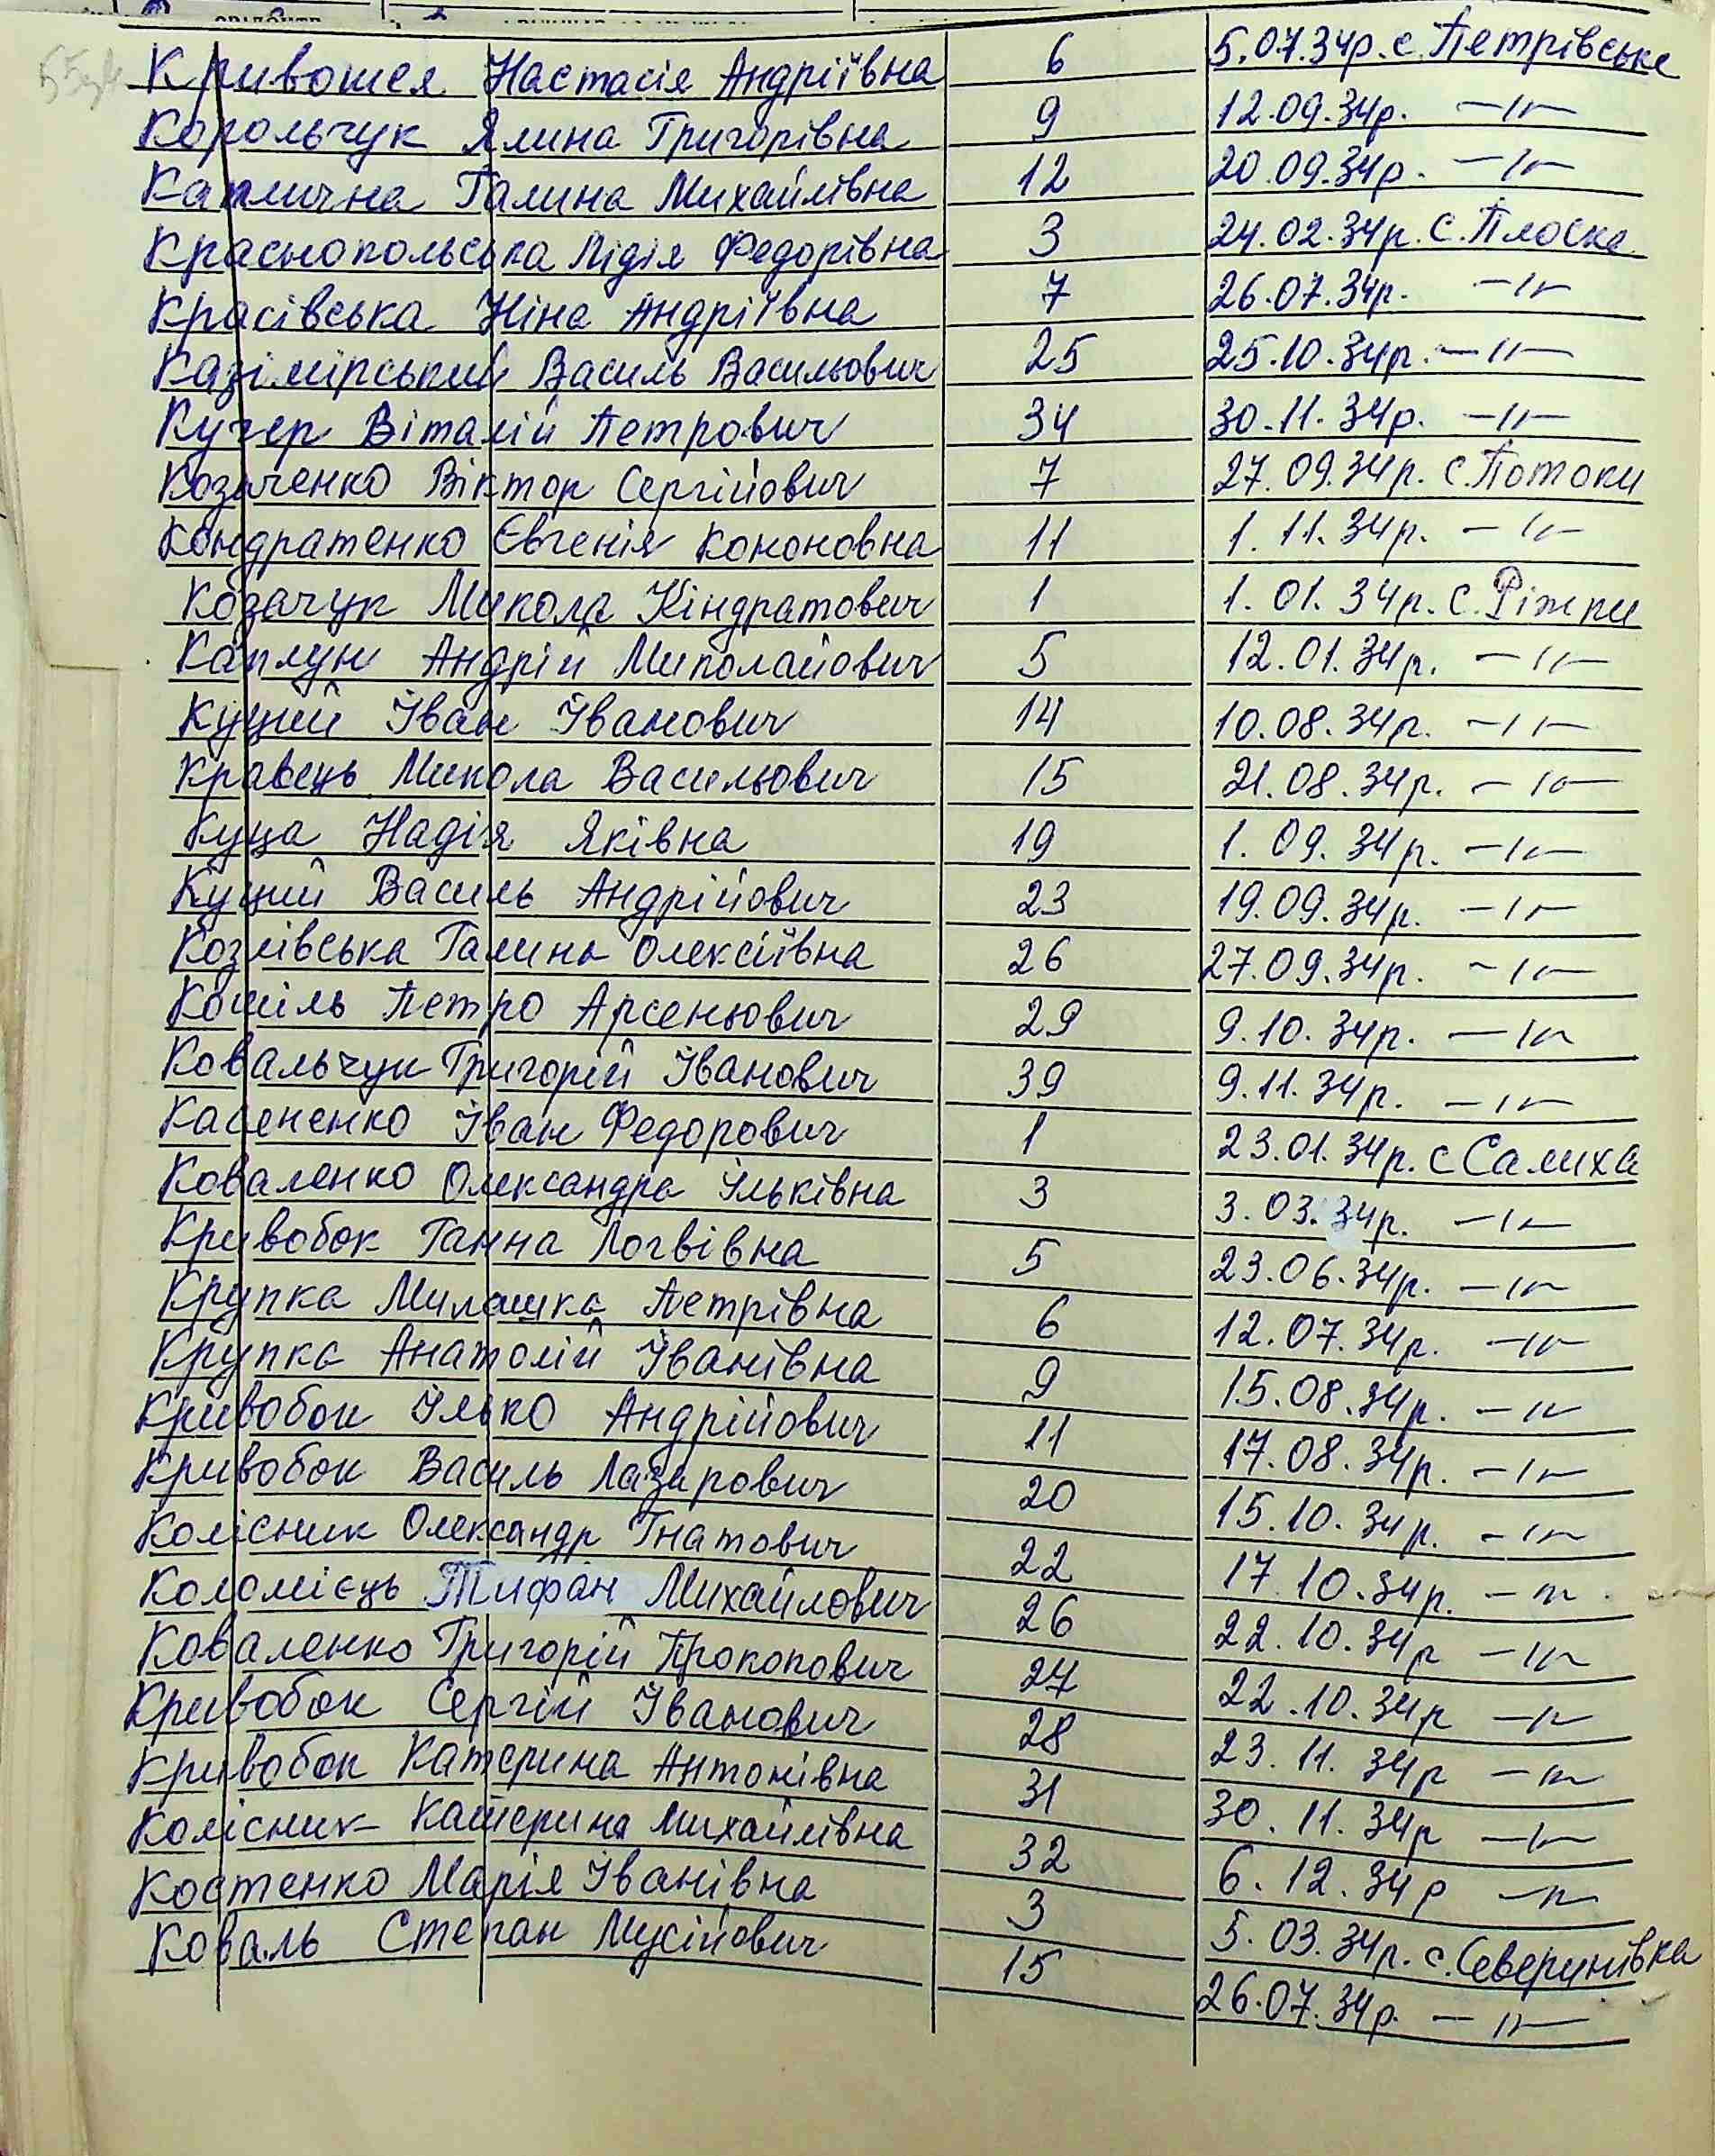 Кривошея Настасія Андріївна 6 5.07.34р. с. Петрівське
Корольчук Ялина Григорівна 9 12.09.34р. —"—
Каплична Галина Михайлівна 12 20.09.34р. —"—
Краснопольська Лідія Федорівна 3 24.02.34р. с. Плоска
Красівська Ніна Андріївна 7 26.07.34р. —"—
Казімірський Василь Васильович 25 25.10.34р. —"—
Кучер Віталій Петрович 34 30.11.34р. —"—
Козаченко Віктор Сергійович 7 27.09.34р. с. Потоки
Кондратенко Євгенія Кононовна 11 1.11.34р. —"—
Козачук Микола Кіндратович 1 1.01.34р. с. Ріжки
Каплун Андрій Миколайович 5 12.01.34р. —"—
Куций Іван Іванович 14 10.08.34р. —"—
Кравець Микола Васильович 15 21.08.34р. —"—
Куца Надія Яківна 19 1.09.34р. —"—
Куций Василь Андрійович 23 19.09.34р. —"—
Козлівська Галина Олексіївна 26 27.09.34р. —"—
Кошіль Петро Арсеньович 29 9.10.34р. —"—
Ковальчук Григорій Іванович 39 9.11.34р. —"—
Касененко Іван Федорович 1 23.01.34р. с Салиха
Коваленко Олександра Ільківна 3 3.03.34р. —"—
Кривобок Ганна Логвівна 5 23.06.34р. —"—
Крупка Милашка Петрівна 6 12.07.34р. —"—
Крупка Анатолій Іванівна 9 15.08.34р. —"—
Кривобок Ілько Андрійович 11 17.08.34р. —"—
Кривобок Василь Лазарович 20 15.10.34р. —"—
Колісник Олександр Гнатович 22 17.10.34р. —"—
Коломієць Тифан Михайлович 26 22.10.34р —"—
Коваленко Григорій Прокопович 24 22.10.34р —"—
Кривобок Сергій Іванович 28 23.11.34р —"—
Кривобок Катерина Антонівна 31 30.11.34р —"—
Колісник Катерина Михайлівна 32 6.12.34р —"—
Костенко Марія Іванівна 3 5.03.34р. с. Северинівка
Коваль Степан Мусійович 15 26.07.34р. —"—